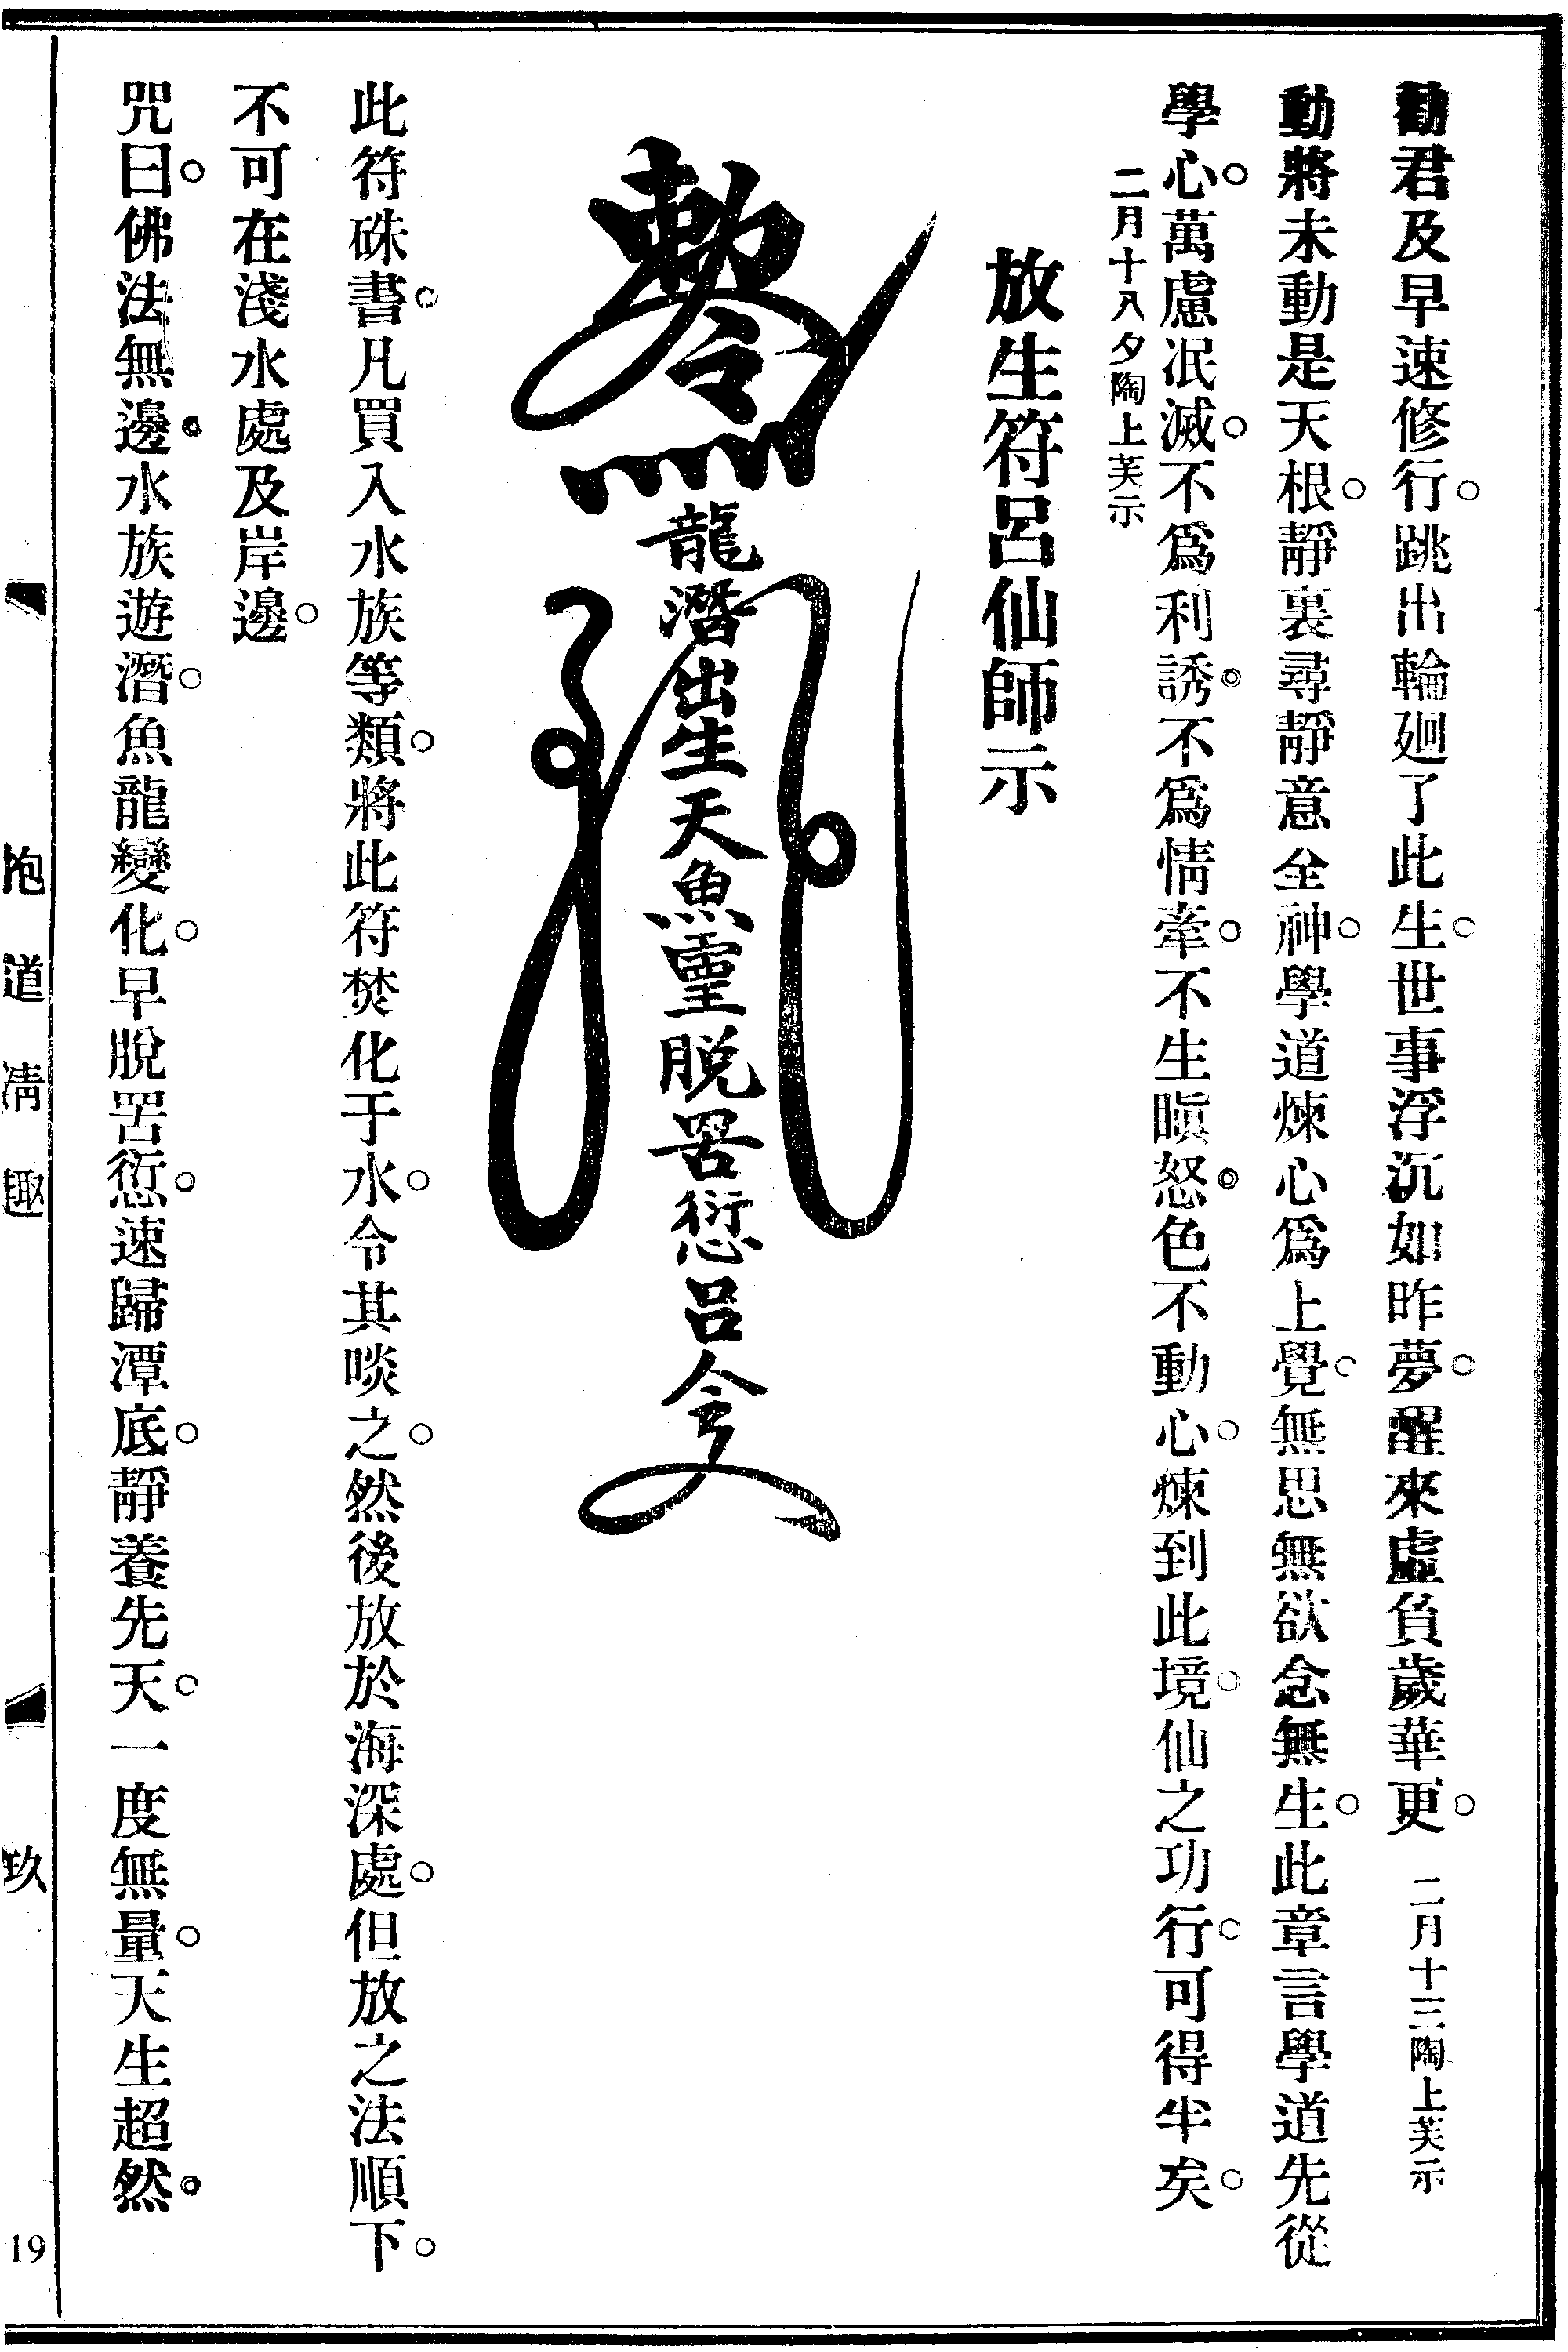 勸君及早速修行。跳出輪廻了此生。世事浮沉如昨夢。醒來虛負歲華更。 二月十三陶上芙示
動將未動是天根。靜裏尋靜意全神。學道煉心爲上覺。無思無欲念無生。此章言學道先從
學心。萬慮泯滅。不爲利誘。不爲情牽。不生瞋怒。色不動心。煉到此境。仙之功行。可得半矣。
二月十八夕陶上芙示
放生符呂仙師示
敕令
龍潛出生天魚霊脱罟愆呂令
此符硃書。凡買入水族等類。將此符焚化于水。令其啖之。然後放於海深處。但放之法順下。
不可在淺水處及岸邊。
咒曰。佛法無邊。水族遊潛。魚龍變化。早脫罟愆。速歸潭底。靜養先天。一度無量。天生超然。
抱道淸趣
玖
19